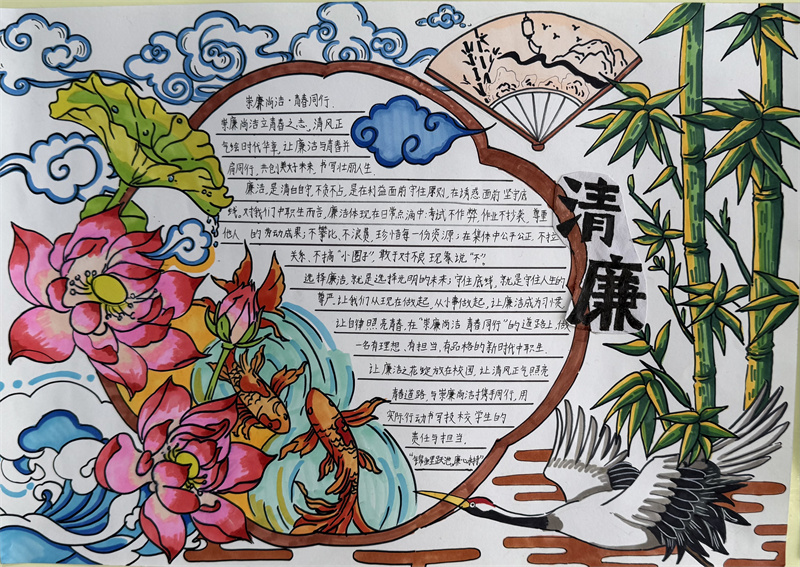 崇廉尚洁·青春同行.
崇廉尚洁立青春之志,清风正
气绘时代华章,让廉洁与青春并
肩同行,共创美好未来,书写壮丽人生.
廉洁,是清白自守,不贪不占,是在利益面前守住原则,在诱惑面前坚守底
线.对我们中职生而言,廉洁体现在日常点滴中:考试不作弊,作业不抄袭,尊重
他人的劳动成果;不攀比,不浪费,珍惜每一份资源;在集体中公平公正,不拉
关系,不搞"小圈子",敢于对不良现象说"不".
选择廉洁,就是选择光明的未来;守住底线,就是守住人生的
尊严.让我们从现在做起,从小事做起,让廉洁成为习惯
让自律照亮青春.在"崇廉尚洁 青春同行"的道路上,做
一名有理想、有担当、有品格的新时代中职生.
让廉洁之花绽放在校园,让清风正气照亮
青春道路,与崇廉尚洁携手同行,用
实际行动书写技校学生的
责任与担当.
清廉